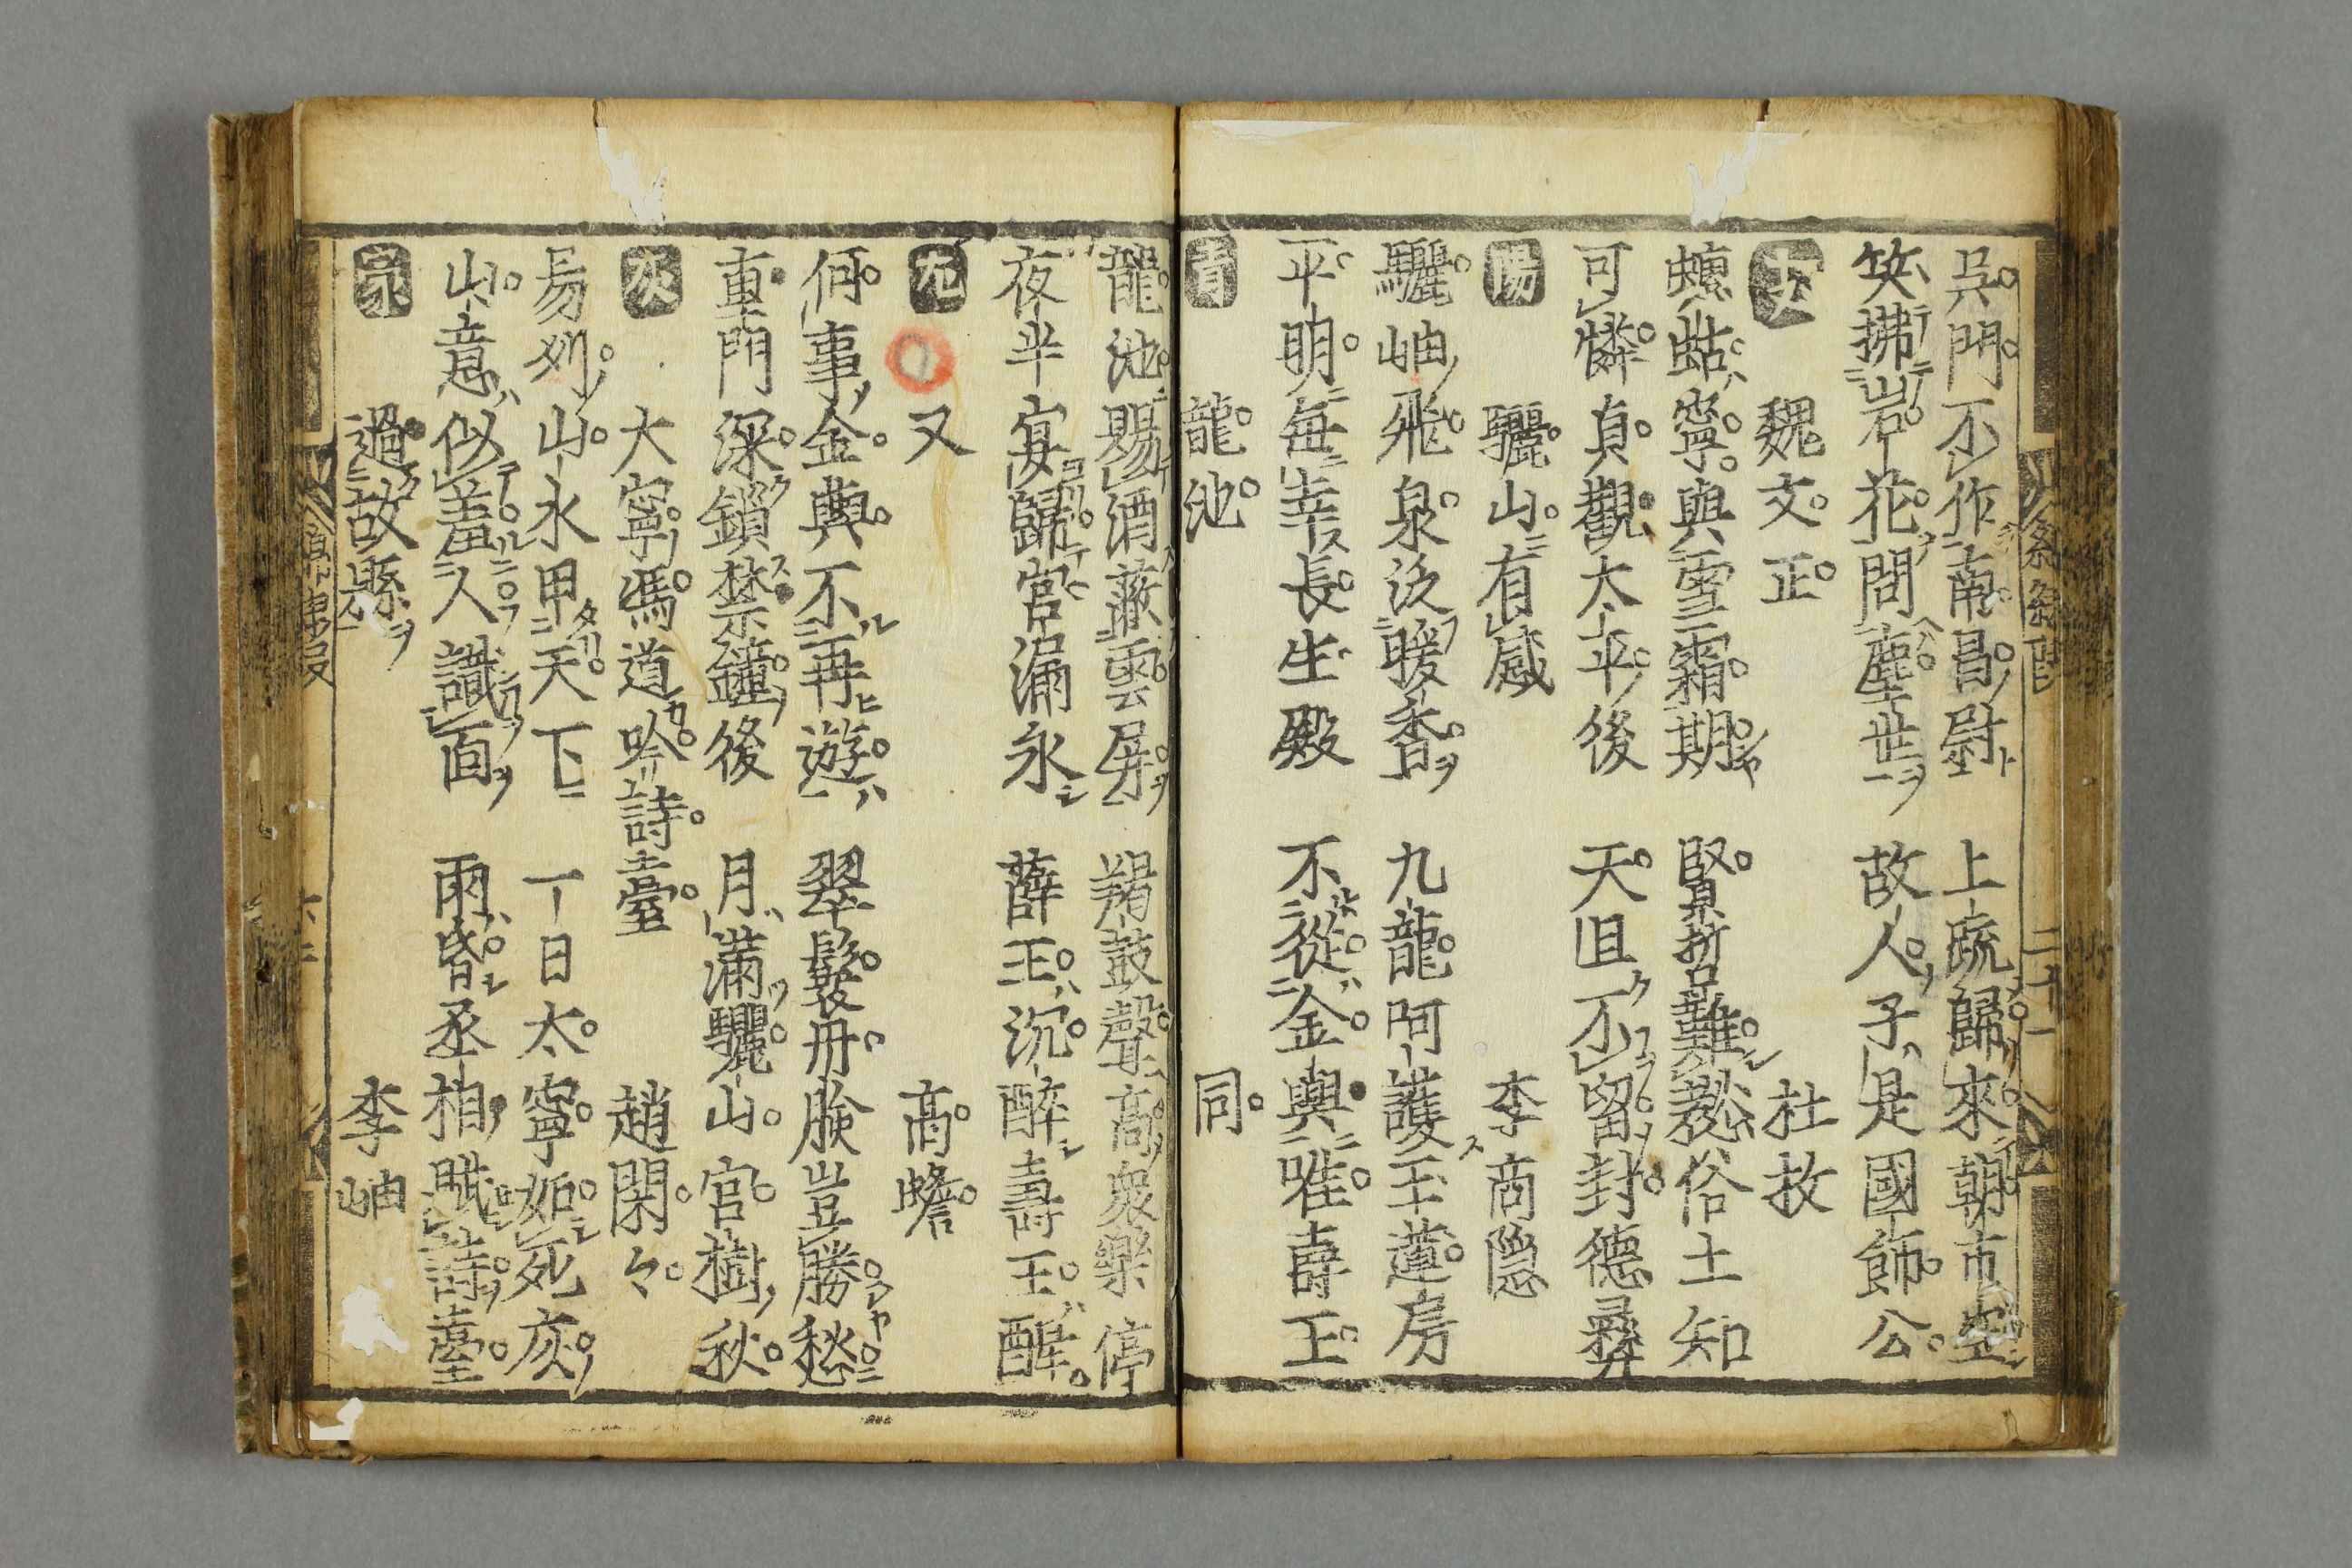 呉門不作南昌尉　上疏歸來朝市空
笑拂岩花問塵世　故人子是國師公
魏文正　杜牧
蟪蛄寧與雪霜期　賢哲難敎俗士知
可憐貞觀太平後　天且不留封德彝
陽　驪山有感　李商隱
驪岫飛泉泛暖香　九龍呵護玉蓮房
平明每幸長生殿　不從金輿唯壽王
青　龍池　同
龍池賜酒蔽雲屏　羯鼓聲高衆樂停
夜半宴歸宮漏永　薛王沉醉壽王醒
尤　又　高蟾
何事金輿不再遊　翠鬟丹臉豈勝愁
重門深鎖禁鐘後　月滿驪山宮樹秋
灰　大寧馮道吟詩臺　趙閑々
易州山水甲天下　一日太寧如死灰
山意似羞人識面　雨昏烝相賦詩臺
過故縣　李岫